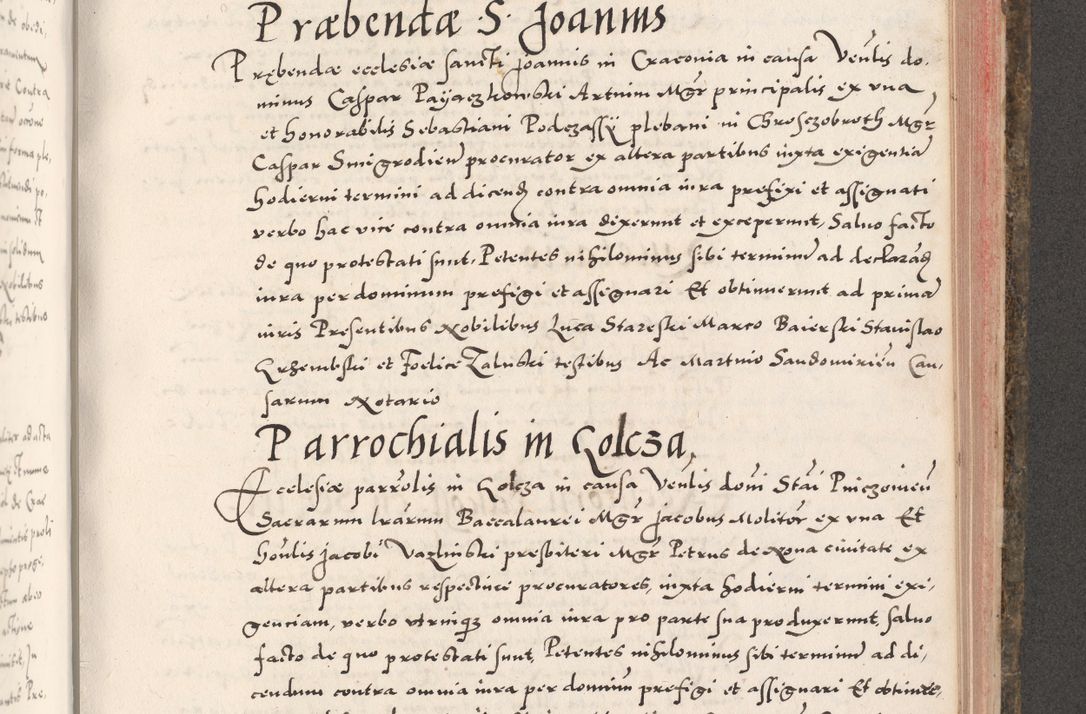 Præbendæ S. Joannis
Prębendæ ecclesiæ sancti Joannis in Craconia in causa Venlis do,
minus Caspar Payaczkowski Artium Mgr principalis ex vna,
et honorabilis Sebastiani Podczassÿ plebani in Chrosczobroth Mgr
Caspar Smigrodien procurator ex altera partibus iuxta exigentia
hodierni termini ad dicend contra omnia iura prefixi et assignati
verbo hac vice contra omnia iura dixerunt et exceperunt, Saluo facto
de quo protestati sunt, Petentes nihilominus sibi terminu ad declarad
iura per dominum prefigi et assignari Et obtinuerunt ad prima
iuris Presentibus Nobilibus Luca Stareski Marco Baierski Stanislao
Grzembski et Foelice Zaluski testibus Ac Martino Sandomirien Cau,
sarum Notario
Parrochialis in Golcza,
Ecclesiæ parrolis in Golcza in causa Venlis doni Stai Pniczonieu
Sacrarum lrarum Baccalaurei Mgr Jacobus Molitor ex vna Et
honlis Jacobi Vazlinski presbiteri Mgr Petrus de Nona ciuitate ex
altera partibus respectiue procuratores, iuxta hodierni termini exi,
genciam, verbo vtriusq omnia iura pro parte sua produxerunt, saluo
facto de quo protestati sunt, Petentes nihilominus sibi terminu ad di,
cendum contra omnia iura per dominu prefigi et assignari Et obtinue,